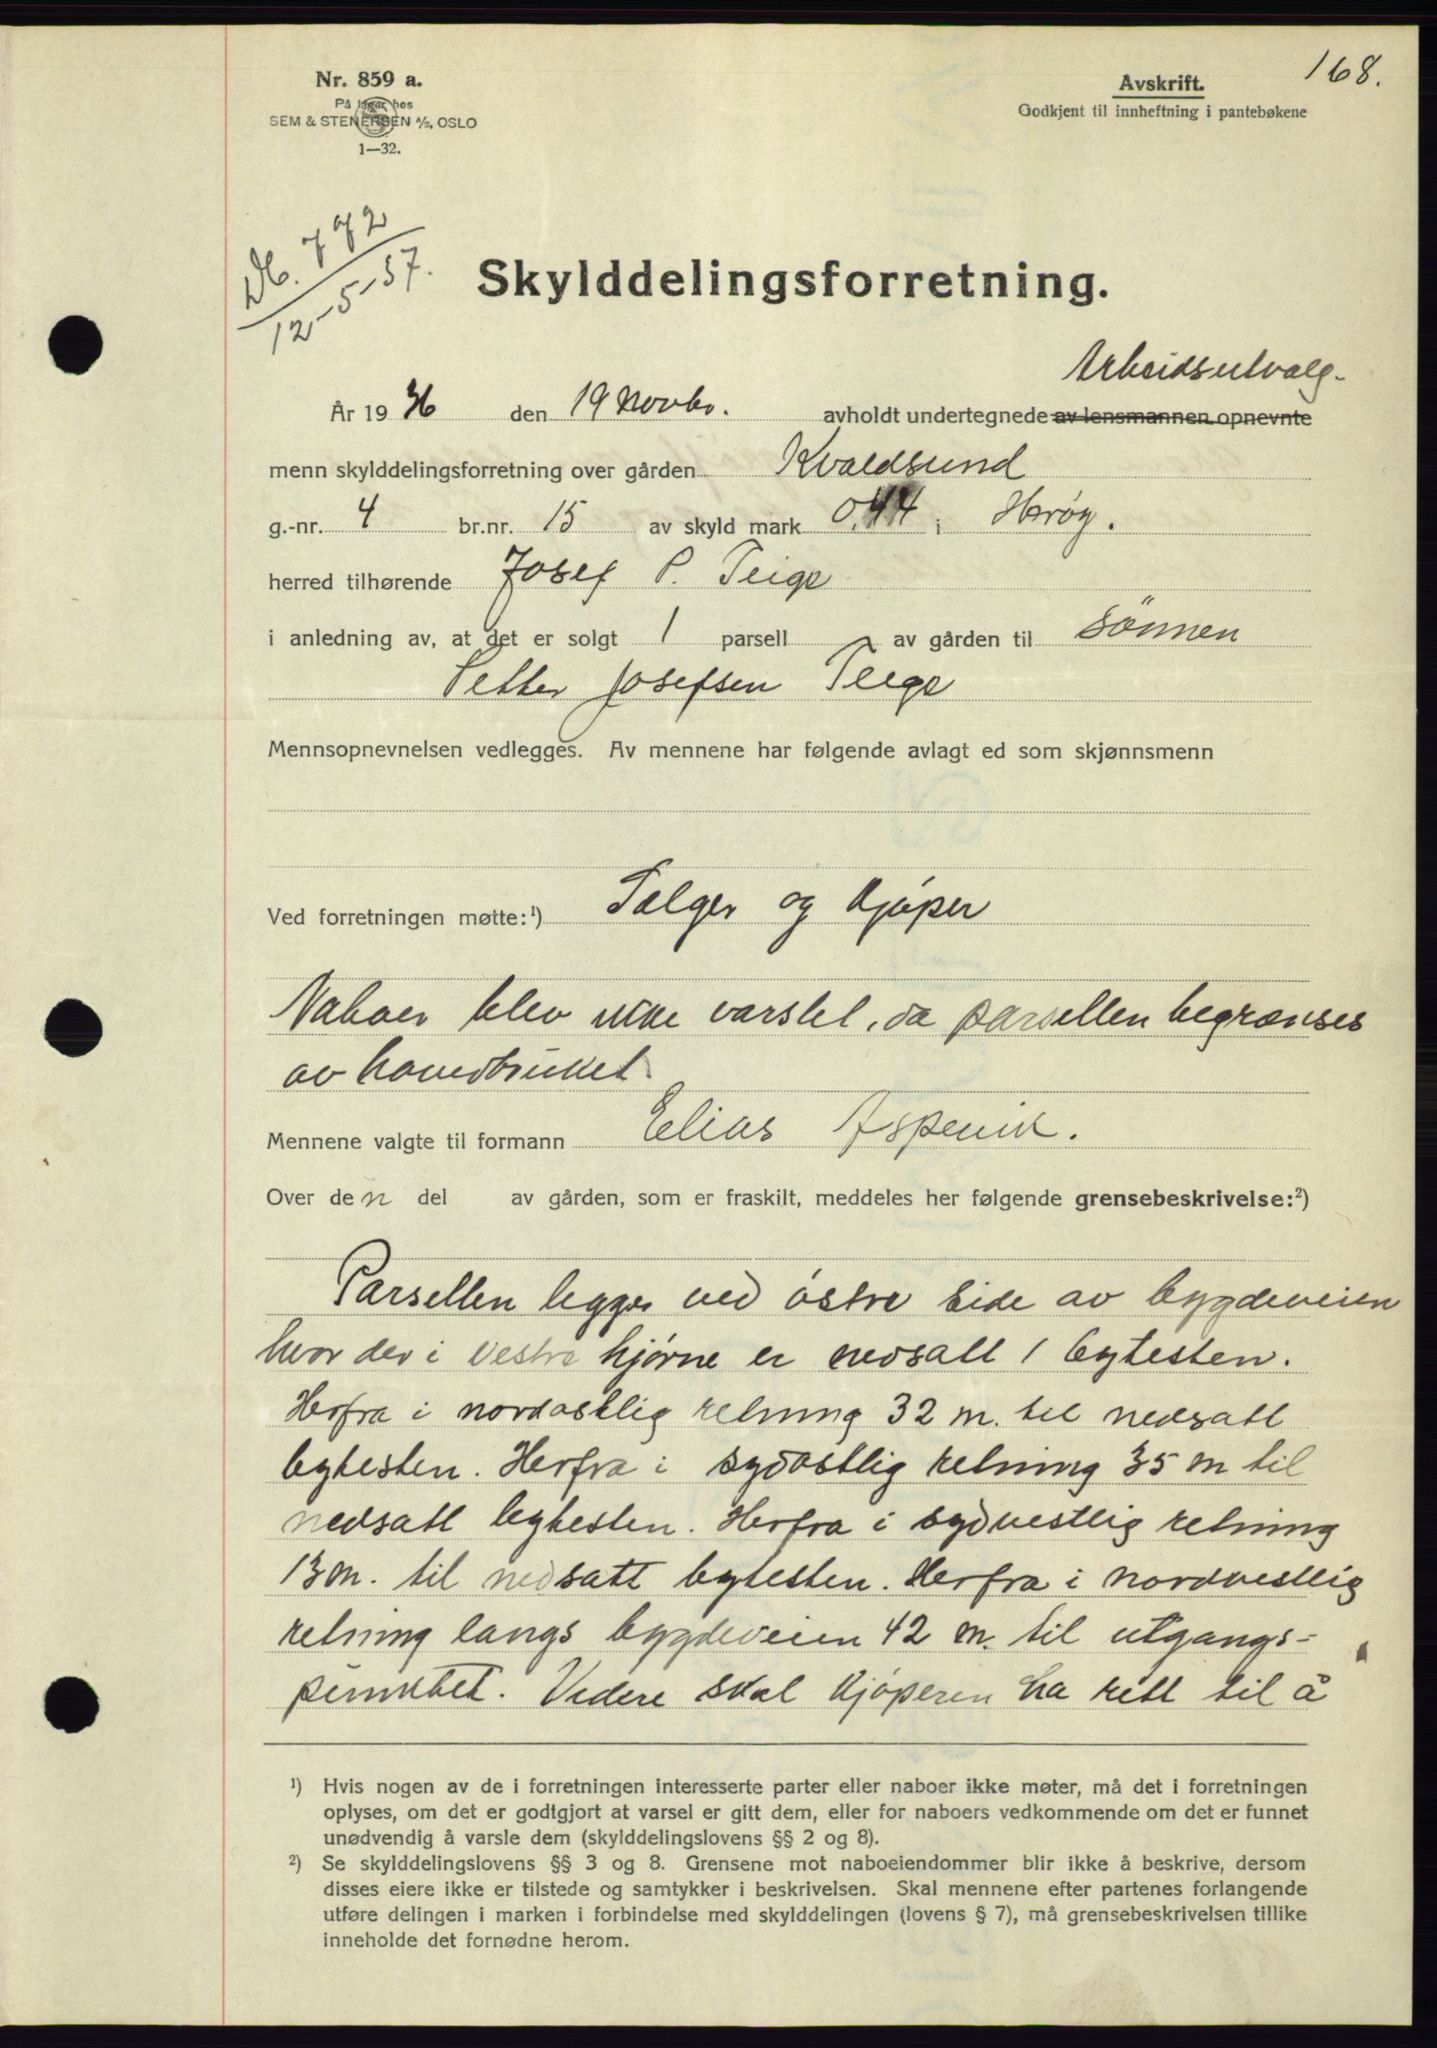 168.
Nr. 859 a.
På lager hos
SEM & STENERSEN A/S, OSLO
1—32.
Avskrift.
Godkjent til innheftning i pantebøkene
Db. 772
12-5-37.
Skylddelingsforretning.
Arbeidsutvalg-
År 1936 den 19 Novbr. avholdt undertegnede av lensmannen opnevnte
menn skylddelingsforretning over gården Kvaldsund
g.-nr. 4 br.nr. 15 av skyld mark 0,44 i Herøy.
herred tilhørende Josef P. Teige
i anledning av, at det er solgt 1 parsell av gården til sønnen
Petter Josefsen Teige
Mennsopnevnelsen vedlegges. Av mennene har følgende avlagt ed som skjønnsmenn
Ved forretningen møtte:¹) Sælger og Kjøper
Naboer blev ikke varslet, da parsellen begrænses
av hovedbruket.
Mennene valgte til formann Elias Aspevik.
Over den del av gården, som er fraskilt, meddeles her følgende grensebeskrivelse:²)
Parsellen legges ved østre side av bygdeveien
hvor der i vestre hjørne er nedsatt 1 bytesten.
Herfra i nordostlig retning 32 m. til nedsatt
bytesten. Herfra i sydostlig retning 35 m til
nedsatt bytesten. Herfra i sydvestlig retning
13 m. til nedsatt bytesten. Herfra i nordvestlig
retning langs bygdeveien 42 m. til utgangs-
punktet. Videre skal Kjøperen ha rett til å
¹) Hvis nogen av de i forretningen interesserte parter eller naboer ikke møter, må det i forretningen
oplyses, om det er godtgjort at varsel er gitt dem, eller for naboers vedkommende om det er funnet
unødvendig å varsle dem (skylddelingslovens §§ 2 og 8).
²) Se skylddelingslovens §§ 3 og 8. Grensene mot naboeiendommer blir ikke å beskrive, dersom
disses eiere ikke er tilstede og samtykker i beskrivelsen. Skal mennene efter partenes forlangende
utføre delingen i marken i forbindelse med skylddelingen (lovens § 7), må grensebeskrivelsen tillike
inneholde det fornødne herom.